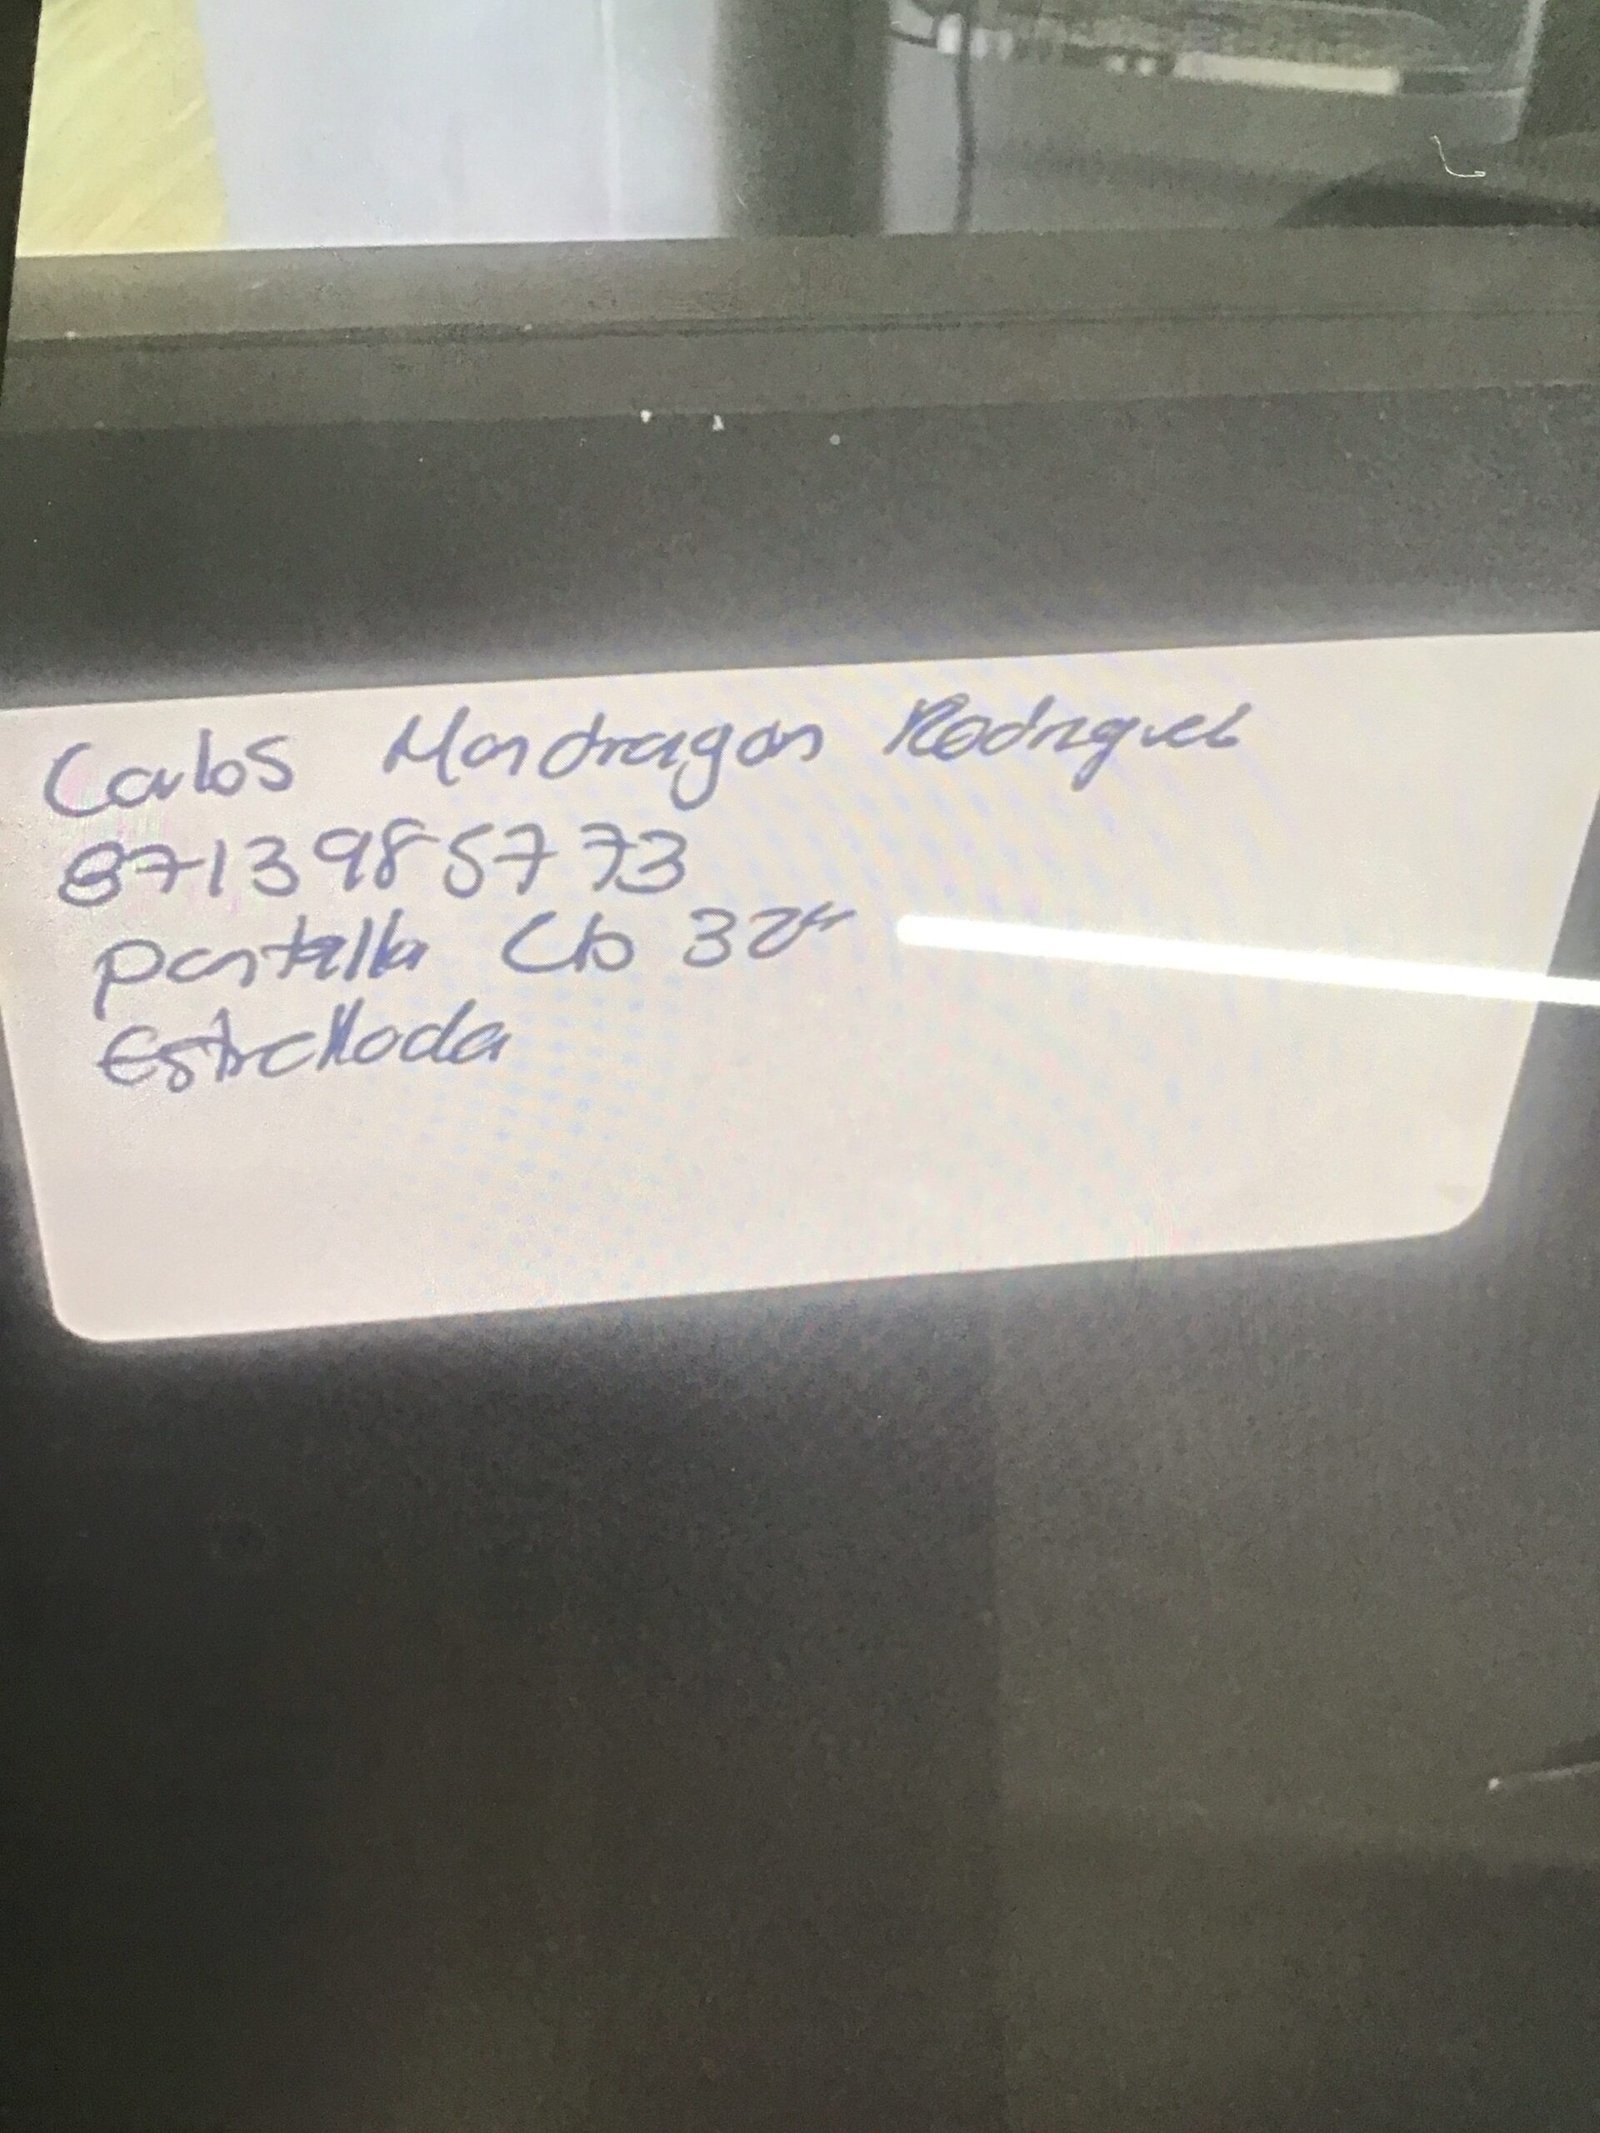 Carlos Mondragon Rodriguez
8713985773
pantalla 32"
Estrellada